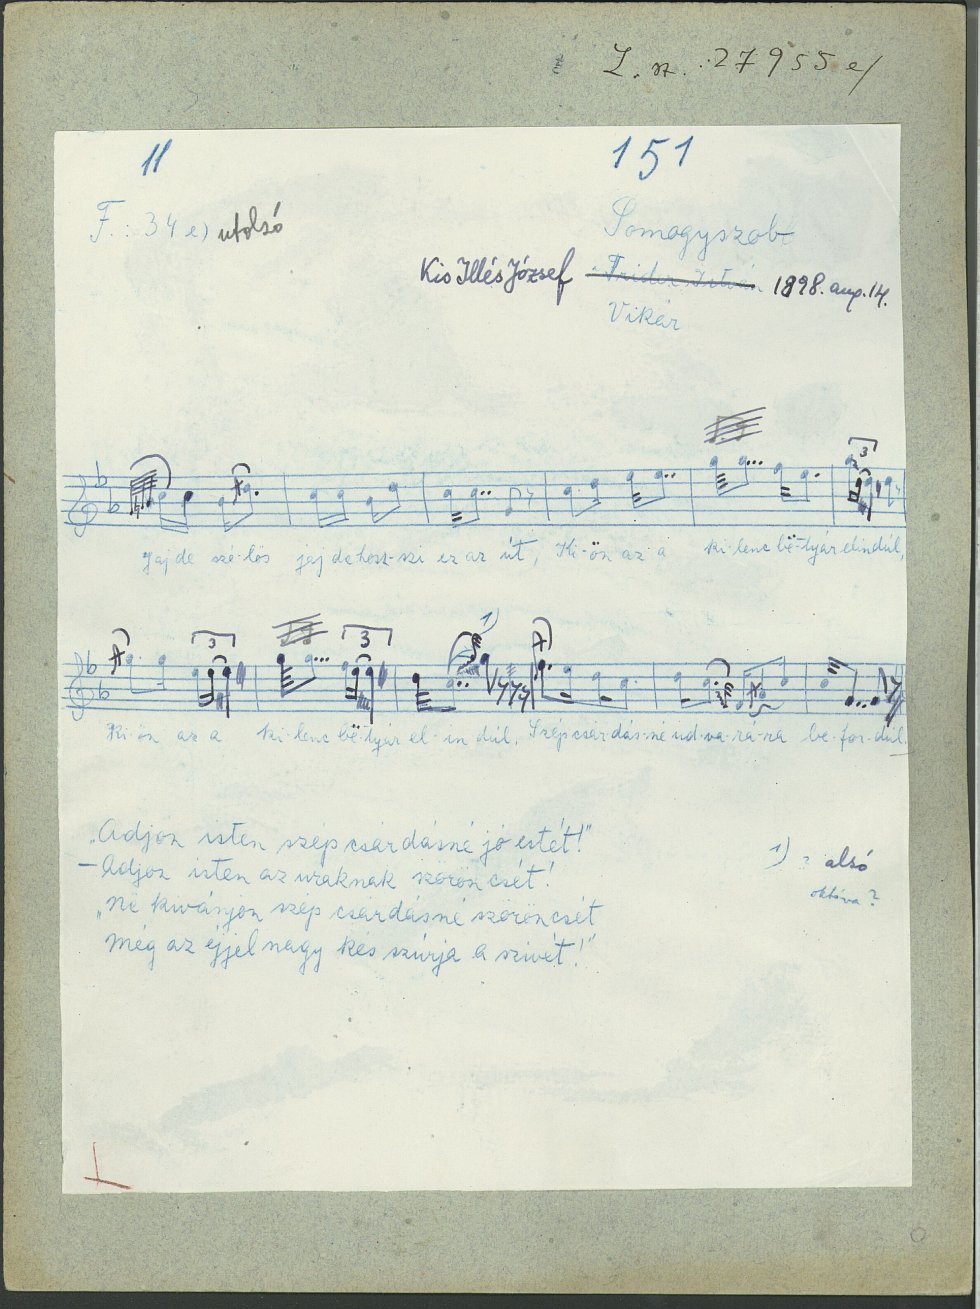 L. sz. : 27955 e/
11
151
F. : 34 e) utolsó
Somogyszob
Kis Illés József Frider István 1898. aug. 14.
Vikár
3
Jaj de szé-lös jaj de hosz-szi ez az út, Ki-ön az a ki-lenc bë-tyár elindúl,
3 3 1)
Ki-ön az a ki-lenc bë-tyár el-in-dúl. Szép csár-dás-né ud-va-rá-ra be-for-dul.
„Adjon isten szép csárdásné jó estét!"
– Adjon isten az uraknak szöröncsét!
„Ne kivánjon szép csárdásné szöröncsét
Még az éjjel nagy kés szúrja a szivét!"
1) : alsó
oktáva ?